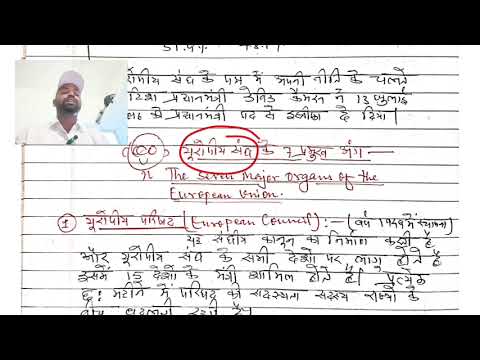 यूरोपीय संघ के पक्ष में अपनी नीति के चलते
प्रधानमंत्री डेविड कैमरन ने 13 जुलाई
को प्रधानमंत्री पद से इस्तीफा दे दिया।
यूरोपीय संघ के 7 प्रमुख अंग —
The Seven Major Organs of the
European Union.
① यूरोपीय परिषद (European Council) :- (वर्ष 1949 में स्थापना)
यह संघीय कानून का निर्माण करती है
और यूरोपीय संघ के सभी देशों पर लागू होते है
इसमें 15 देशों के मंत्री शामिल होते हैं। प्रत्येक
छ: महीने में परिषद की सदस्यता सदस्य राष्ट्रों के
बीच बदलती रहती है